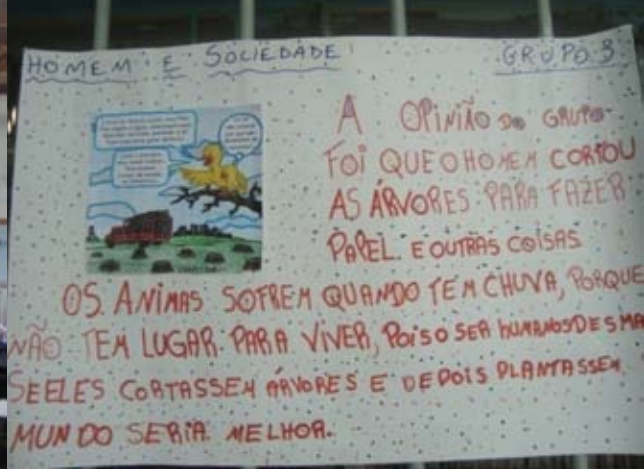 HOMEM E SOCIEDADE
GRUPO 3
A OPINIÃO DO GRUPO
FOI QUE O HOMEM CORTOU
AS ÁRVORES PARA FAZER
PAPEL E OUTRAS COISAS
OS ANIMAS SOFREM QUANDO TEM CHUVA, PORQUE
NÃO TEM LUGAR PARA VIVER, POIS O SER HUMANOS DESMA
SE ELES CORTASSEM ÁRVORES E DEPOIS PLANTASSEM
MUNDO SERIA MELHOR.